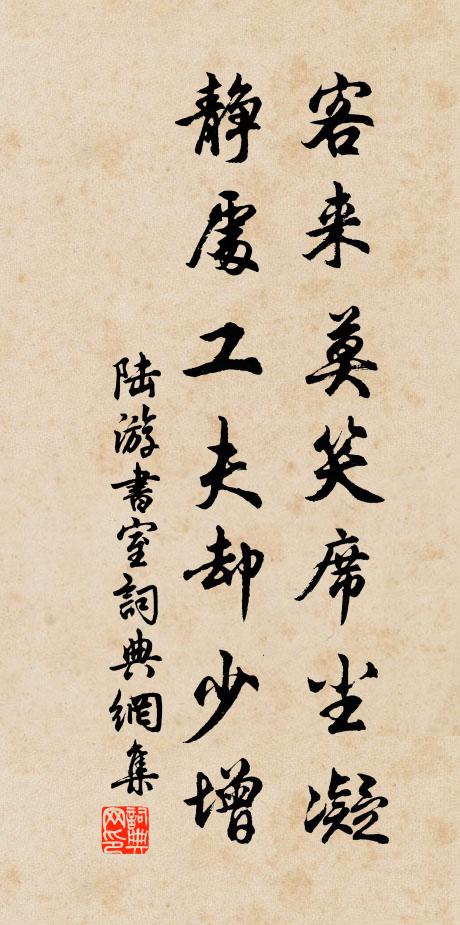 客来莫笑席尘凝
静處工夫却少增
陆游書室詞典網集
詞典
网印